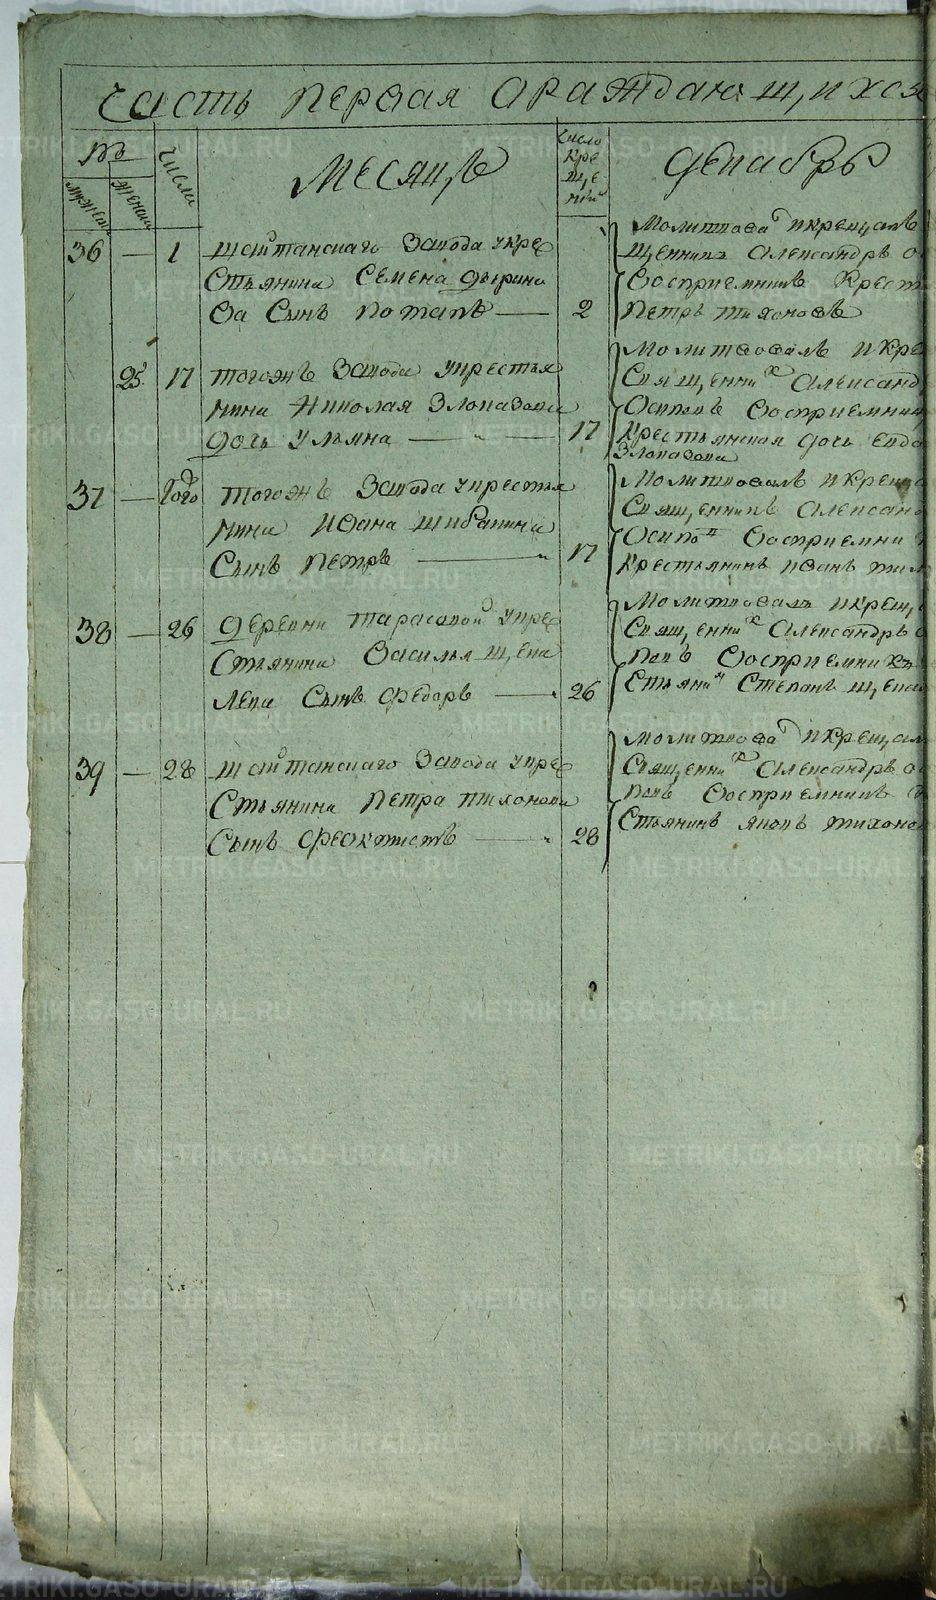 Часть первая ораждающихся
№
мужеск
женска
числа
Месяцъ
число
кре
ще
ній
Декабрь
36 — 1 Шайтанскаго завода укре
стьянина Семена Дырина
ва сынъ Потапъ — 2
Молитвова и крещалъ
щенникъ Александръ О
Восприемникъ Крест
Петръ Тихоновъ
25 17 Тогожъ завода укрестья
нина Николая Злоказова
дочь Ульяна — 17
Молитвовалъ и кре
Священни Александ
Осиповъ Восприемниц
крестьянская дочь Евдо
Злоказова
37 — того Тогожъ завода укрестья
нина Ивана Шибанина
сынъ Петръ — 17
Молитвовалъ и креща
Священникъ Алексан
Осипо Восприемни
Крестьянинъ Иванъ
38 — 26 Деревни Тарасовой укре
стьянина Василья Щепа
лева сынъ Федоръ — 26
Молитвовалъ и крещ
Священни Александръ О
повъ Восприемникъ
стьяни Степанъ Щепа
39 — 28 Шайтанскаго завода укре
стьянина Петра Тихонова
сынъ Феоктистъ — 28
Молитвова и крещал
Священни Александръ О
повъ Восприемникъ
стьянинъ Яковъ Тихоно
METRIKI.GASO-URAL.RU